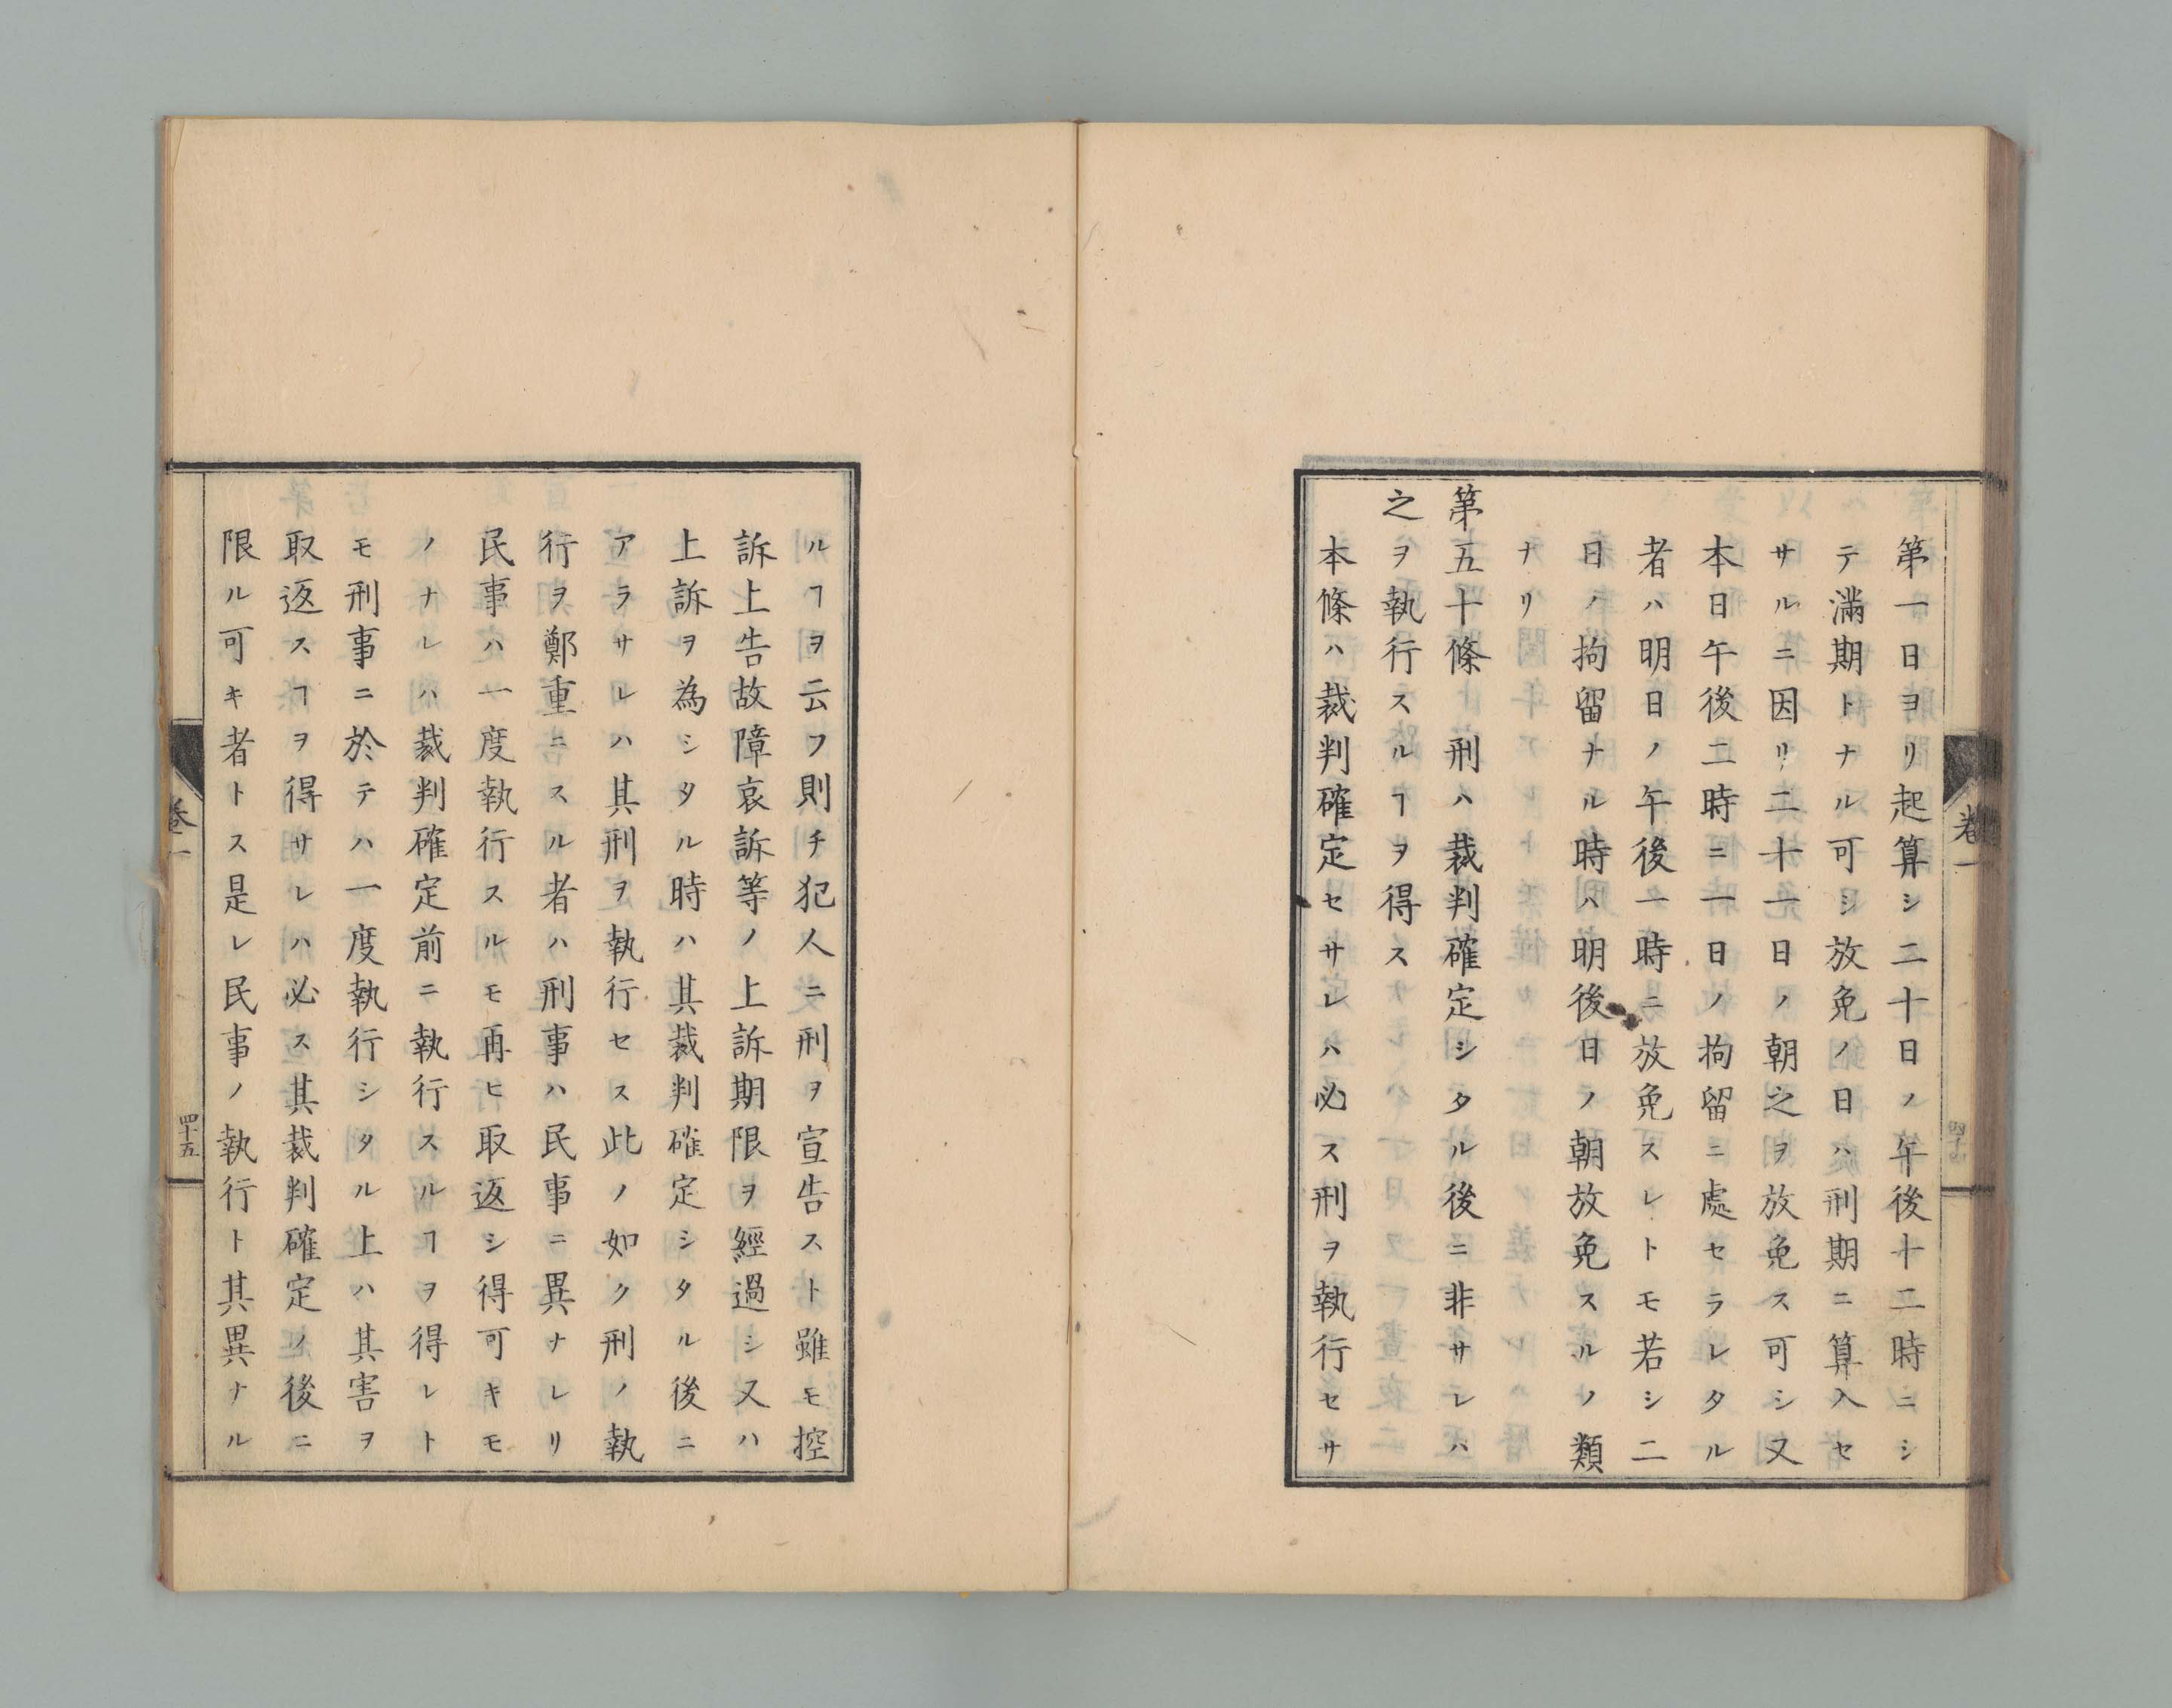 第一日ヨリ起算シ二十日ノ午後十二時ニシ
テ滿期トナル可シ放免ノ日ハ刑期ニ算入セ
サルニ因リ二十一日ノ朝之ヲ放免ス可シ又
本日午後二時ニ一日ノ拘留ニ處セラレタル
者ハ明日ノ午後一時ニ放免スレトモ若シ二
日ノ拘留ナル時ハ明後日ノ朝放免スルノ類
ナリ
第五十條 刑ハ裁判確定シタル後ニ非サレハ
之ヲ執行スルヿヲ得ス
本條ハ裁判確定セサレハ必ス刑ヲ執行セサ
卷一
ルヿヲ云フ則チ犯人ニ刑ヲ宣告スト雖モ控
訴上告故障哀訴等ノ上訴期限ヲ經過シ又ハ
上訴ヲ為シタル時ハ其裁判確定シタル後ニ
アラサレハ其刑ヲ執行セス此ノ如ク刑ノ執
行ヲ鄭重ニスル者ハ刑事ハ民事ニ異ナレリ
民事ハ一度執行スルモ再ヒ取返シ得可キモ
ノナレハ裁判確定前ニ執行スルヿヲ得レト
モ刑事ニ於テハ一度執行シタル上ハ其害ヲ
取返スヿヲ得サレハ必ス其裁判確定ノ後ニ
限ル可キ者トス是レ民事ノ執行ト其異ナル
卷一
四十五